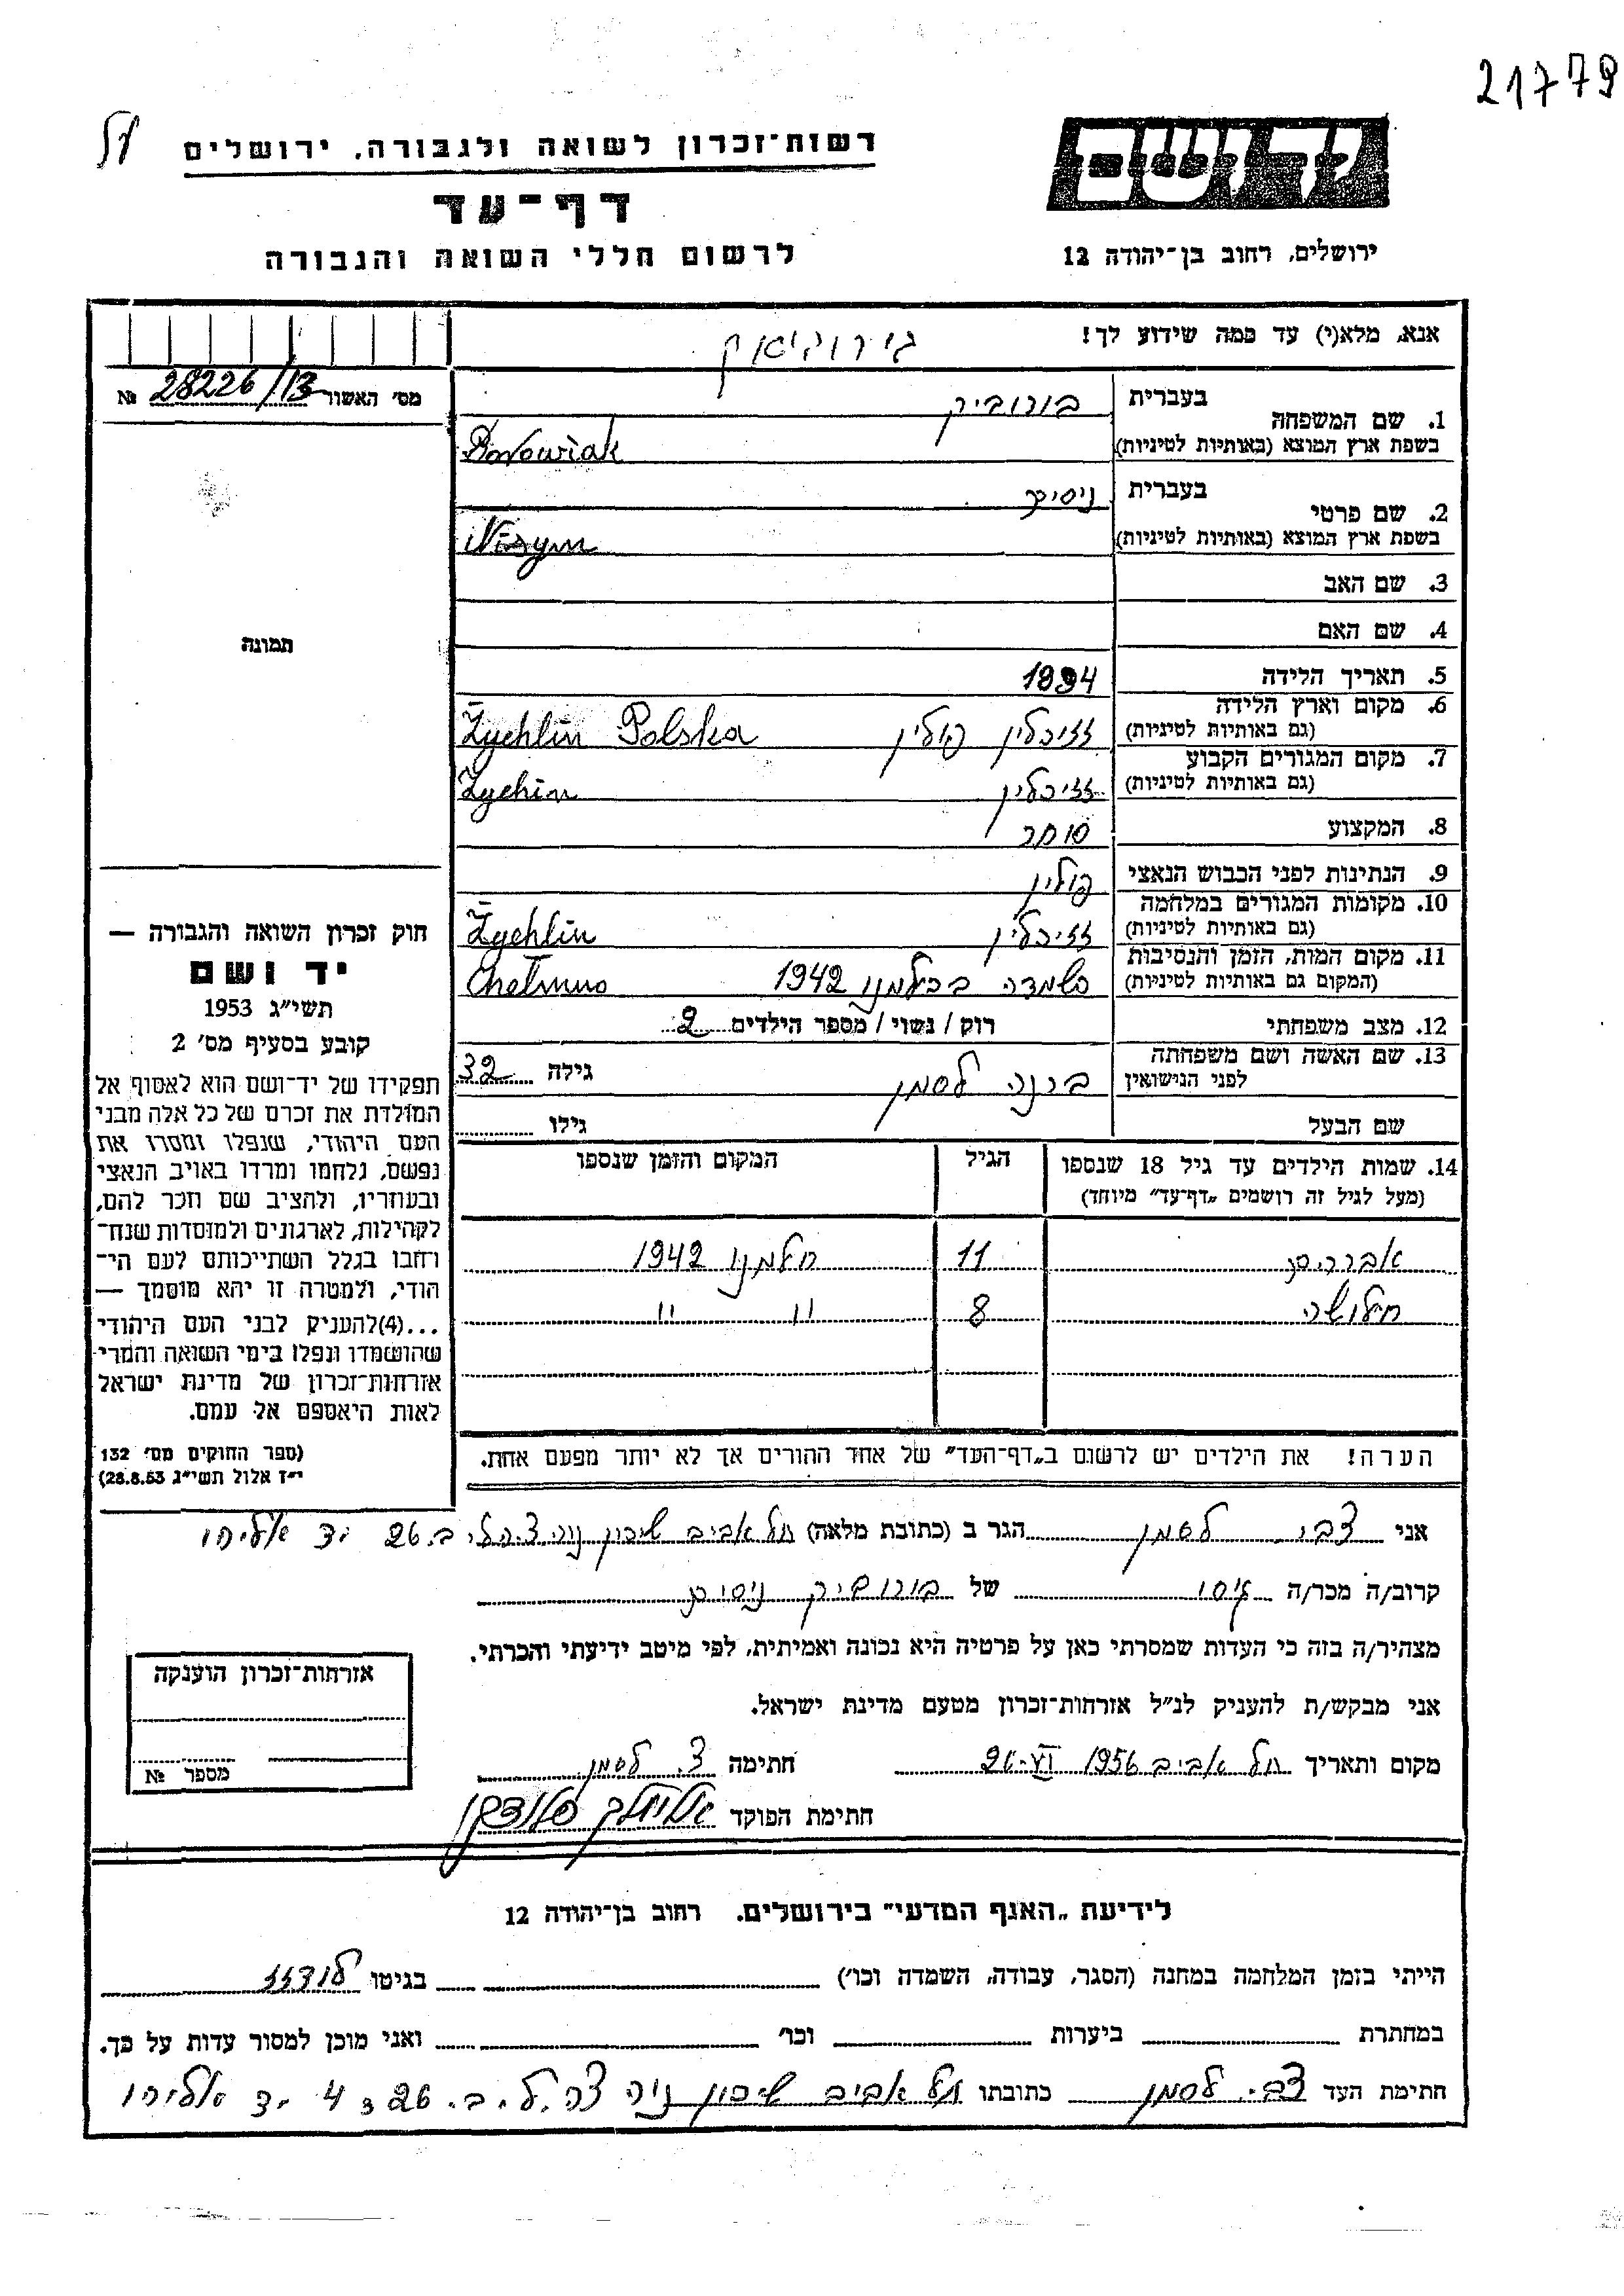 21779
רשות־זכרון לשואה ולגבורה, ירושלים
דף־עד
לרשום חללי השואה והגבורה
יד ושם
ירושלים, רחוב בן־יהודה 12
אנא, מלא(י) עד כמה שידוע לך!
מס' האשור 28226/13 №
תמונה
1. שם המשפחה
בעברית בורוביק
בשפת ארץ המוצא (באותיות לטיניות) Borowiak
2. שם פרטי
בעברית ניסים
בשפת ארץ המוצא (באותיות לטיניות) Nisym
3. שם האב
4. שם האם
5. תאריך הלידה 1894
6. מקום וארץ הלידה
(גם באותיות לטיניות) זזיכלין פולין Żychlin Polska
7. מקום המגורים הקבוע
(גם באותיות לטיניות) זזיכלין Żychin
8. המקצוע סוחר
9. הנתינות לפני הכבוש הנאצי פולין
10. מקומות המגורים במלחמה
(גם באותיות לטיניות) זזיכלין Żychlin
11. מקום המות, הזמן והנסיבות
(המקום גם באותיות לטיניות) השמדה בכילמנו 1942 Chełmno
12. מצב משפחתי רוק / נשוי / מספר הילדים 2
13. שם האשה ושם משפחתה
לפני הנישואין ברנה לסמן גילה 32
שם הבעל גילו
14. שמות הילדים עד גיל 18 שנספו הגיל המקום והזמן שנספו
(מעל לגיל זה רושמים „דף־עד" מיוחד)
אברהם 11 חלמנו 1942
8 " "
הערה! את הילדים יש לרשום ב„דף־העד" של אחד ההורים אך לא יותר מפעם אחת.
חוק זכרון השואה והגבורה —
יד ושם
תשי"ג 1953
קובע בסעיף מס' 2
תפקידו של יד־ושם הוא לאסוף אל
המולדת את זכרם של כל אלה מבני
העם היהודי, שנפלו ומסרו את
נפשם, נלחמו ומרדו באויב הנאצי
ובעוזריו, ולהציב שם וזכר להם,
לקהילות, לארגונים ולמוסדות שנח־
רחבו בגלל השתייכותם לעם הי־
הודי, ולמטרה זו יהא מוסמך —
...(4)להעניק לבני העם היהודי
שהושמדו ונפלו בימי השואה והמרי
אזרחות־זכרון של מדינת ישראל
לאות היאספם אל עמם.
(ספר החוקים מס' 132
י"ז אלול תשי"ג 28.8.53)
אני צבי לסמן הגר ב (כתובת מלאה) תל אביב שיכון נוה צ.ה.ל ב. 26 יד אליהו
קרוב/ה מכר/ה גיסו של בורוביק ניסים
מצהיר/ה בזה כי העדות שמסרתי כאן על פרטיה היא נכונה ואמיתית, לפי מיטב ידיעתי והכרתי.
אני מבקש/ת להעניק לנ"ל אזרחות־זכרון מטעם מדינת ישראל.
מקום ותאריך תל אביב 26.VI 1956 חתימה צ. לסמן
חתימת הפוקד
אזרחות־זכרון הוענקה
מספר №
לידיעת „האגף המדעי" בירושלים. רחוב בן־יהודה 12
הייתי בזמן המלחמה במחנה (הסגר, עבודה, השמדה וכו') בגיטו לודזז
במחתרת ביערות וכו' ואני מוכן למסור עדות על כך.
חתימת העד צבי לסמן כתובתו תל אביב שיכון נוה צ.ה.ל. ב. 26 ג 4 יד אליהו